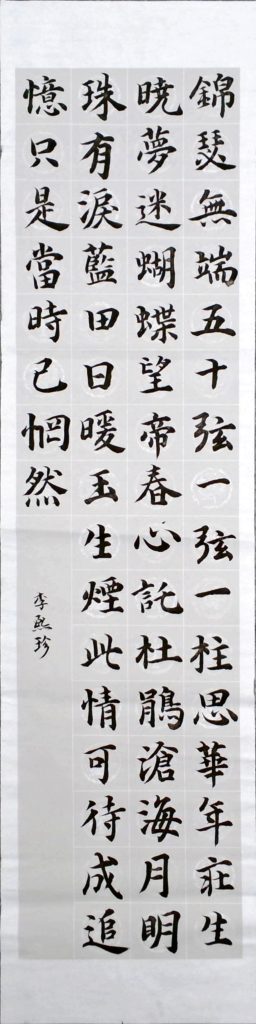 錦瑟無端五十弦一弦一柱思華年莊生
暁夢迷蝴蝶望帝春心託杜鵑滄海月明
珠有淚藍田日暖玉生煙此情可待成追
憶只是當時已惘然
李熙珍